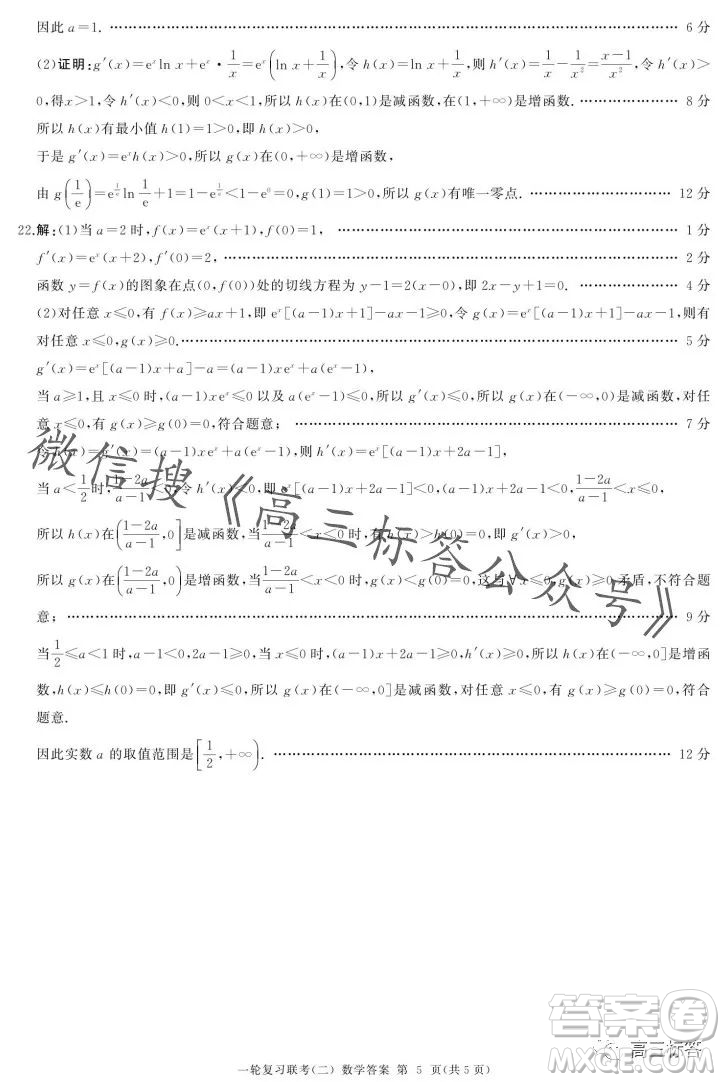 因此 a=1. …… 6 分
(2)证明:g′(x)=eˣln x+eˣ·1/x=eˣ(ln x+1/x),令 h(x)=ln x+1/x,则 h′(x)=1/x-1/x²=(x-1)/x²,令 h′(x)>
0,得x>1,令 h′(x)<0,则 0<x<1,所以 h(x)在(0,1)是减函数,在(1,+∞)是增函数. …… 8 分
所以 h(x)有最小值 h(1)=1>0,即 h(x)>0,
于是 g′(x)=eˣh(x)>0,所以 g(x)在(0,+∞)是增函数,
由 g(1/e)=e^(1/e)ln 1/e+1=1-e^(1/e)<1-e⁰=0,所以 g(x)有唯一零点. …… 12 分
22.解:(1)当 a=2 时,f(x)=eˣ(x+1),f(0)=1, …… 1 分
f′(x)=eˣ(x+2),f′(0)=2, …… 2 分
函数 y=f(x)的图象在点(0,f(0))处的切线方程为 y-1=2(x-0),即 2x-y+1=0. …… 4 分
(2)对任意 x≤0,有 f(x)≥ax+1,即 eˣ[(a-1)x+1]-ax-1≥0,令 g(x)=eˣ[(a-1)x+1]-ax-1,则有
对任意 x≤0,g(x)≥0. …… 5 分
g′(x)=eˣ[(a-1)x+a]-a=(a-1)xeˣ+a(eˣ-1),
当 a≥1,且 x≤0 时,(a-1)xeˣ≤0 以及 a(eˣ-1)≤0,所以 g′(x)≤0,所以 g(x)在(-∞,0]是减函数,对任
意 x≤0,有 g(x)≥g(0)=0,符合题意; …… 7 分
令 h(x)=g′(x)=(a-1)xeˣ+a(eˣ-1),则 h′(x)=eˣ[(a-1)x+2a-1],
当 a<1/2 时,(1-2a)/(a-1)<0,令 h′(x)≤0,所以(a-1)x+2a-1≤0,(a-1)x≤1-2a,(1-2a)/(a-1)≤x≤0,
所以 h(x)在((1-2a)/(a-1),0]是减函数,当(1-2a)/(a-1)<x<0 时,有 h(x)>h(0)=0,即 g′(x)>0,
所以 g(x)在((1-2a)/(a-1),0)是增函数,当(1-2a)/(a-1)<x<0 时,g(x)<g(0)=0,这与∀x≤0,g(x)≥0 矛盾,不符合题
意; …… 9 分
当 1/2≤a<1 时,a-1<0,2a-1≥0,当 x≤0 时,(a-1)x+2a-1≥0,h′(x)≥0,所以 h(x)在(-∞,0]是增函
数,h(x)≤h(0)=0,即 g′(x)≤0,所以 g(x)在(-∞,0]是减函数,对任意 x≤0,有 g(x)≥g(0)=0,符合
题意.
因此实数 a 的取值范围是[1/2,+∞). …… 12 分
微信搜《高三标答公众号》
一轮复习联考(二) 数学答案 第 5 页(共 5 页)
答案圈
高三标答